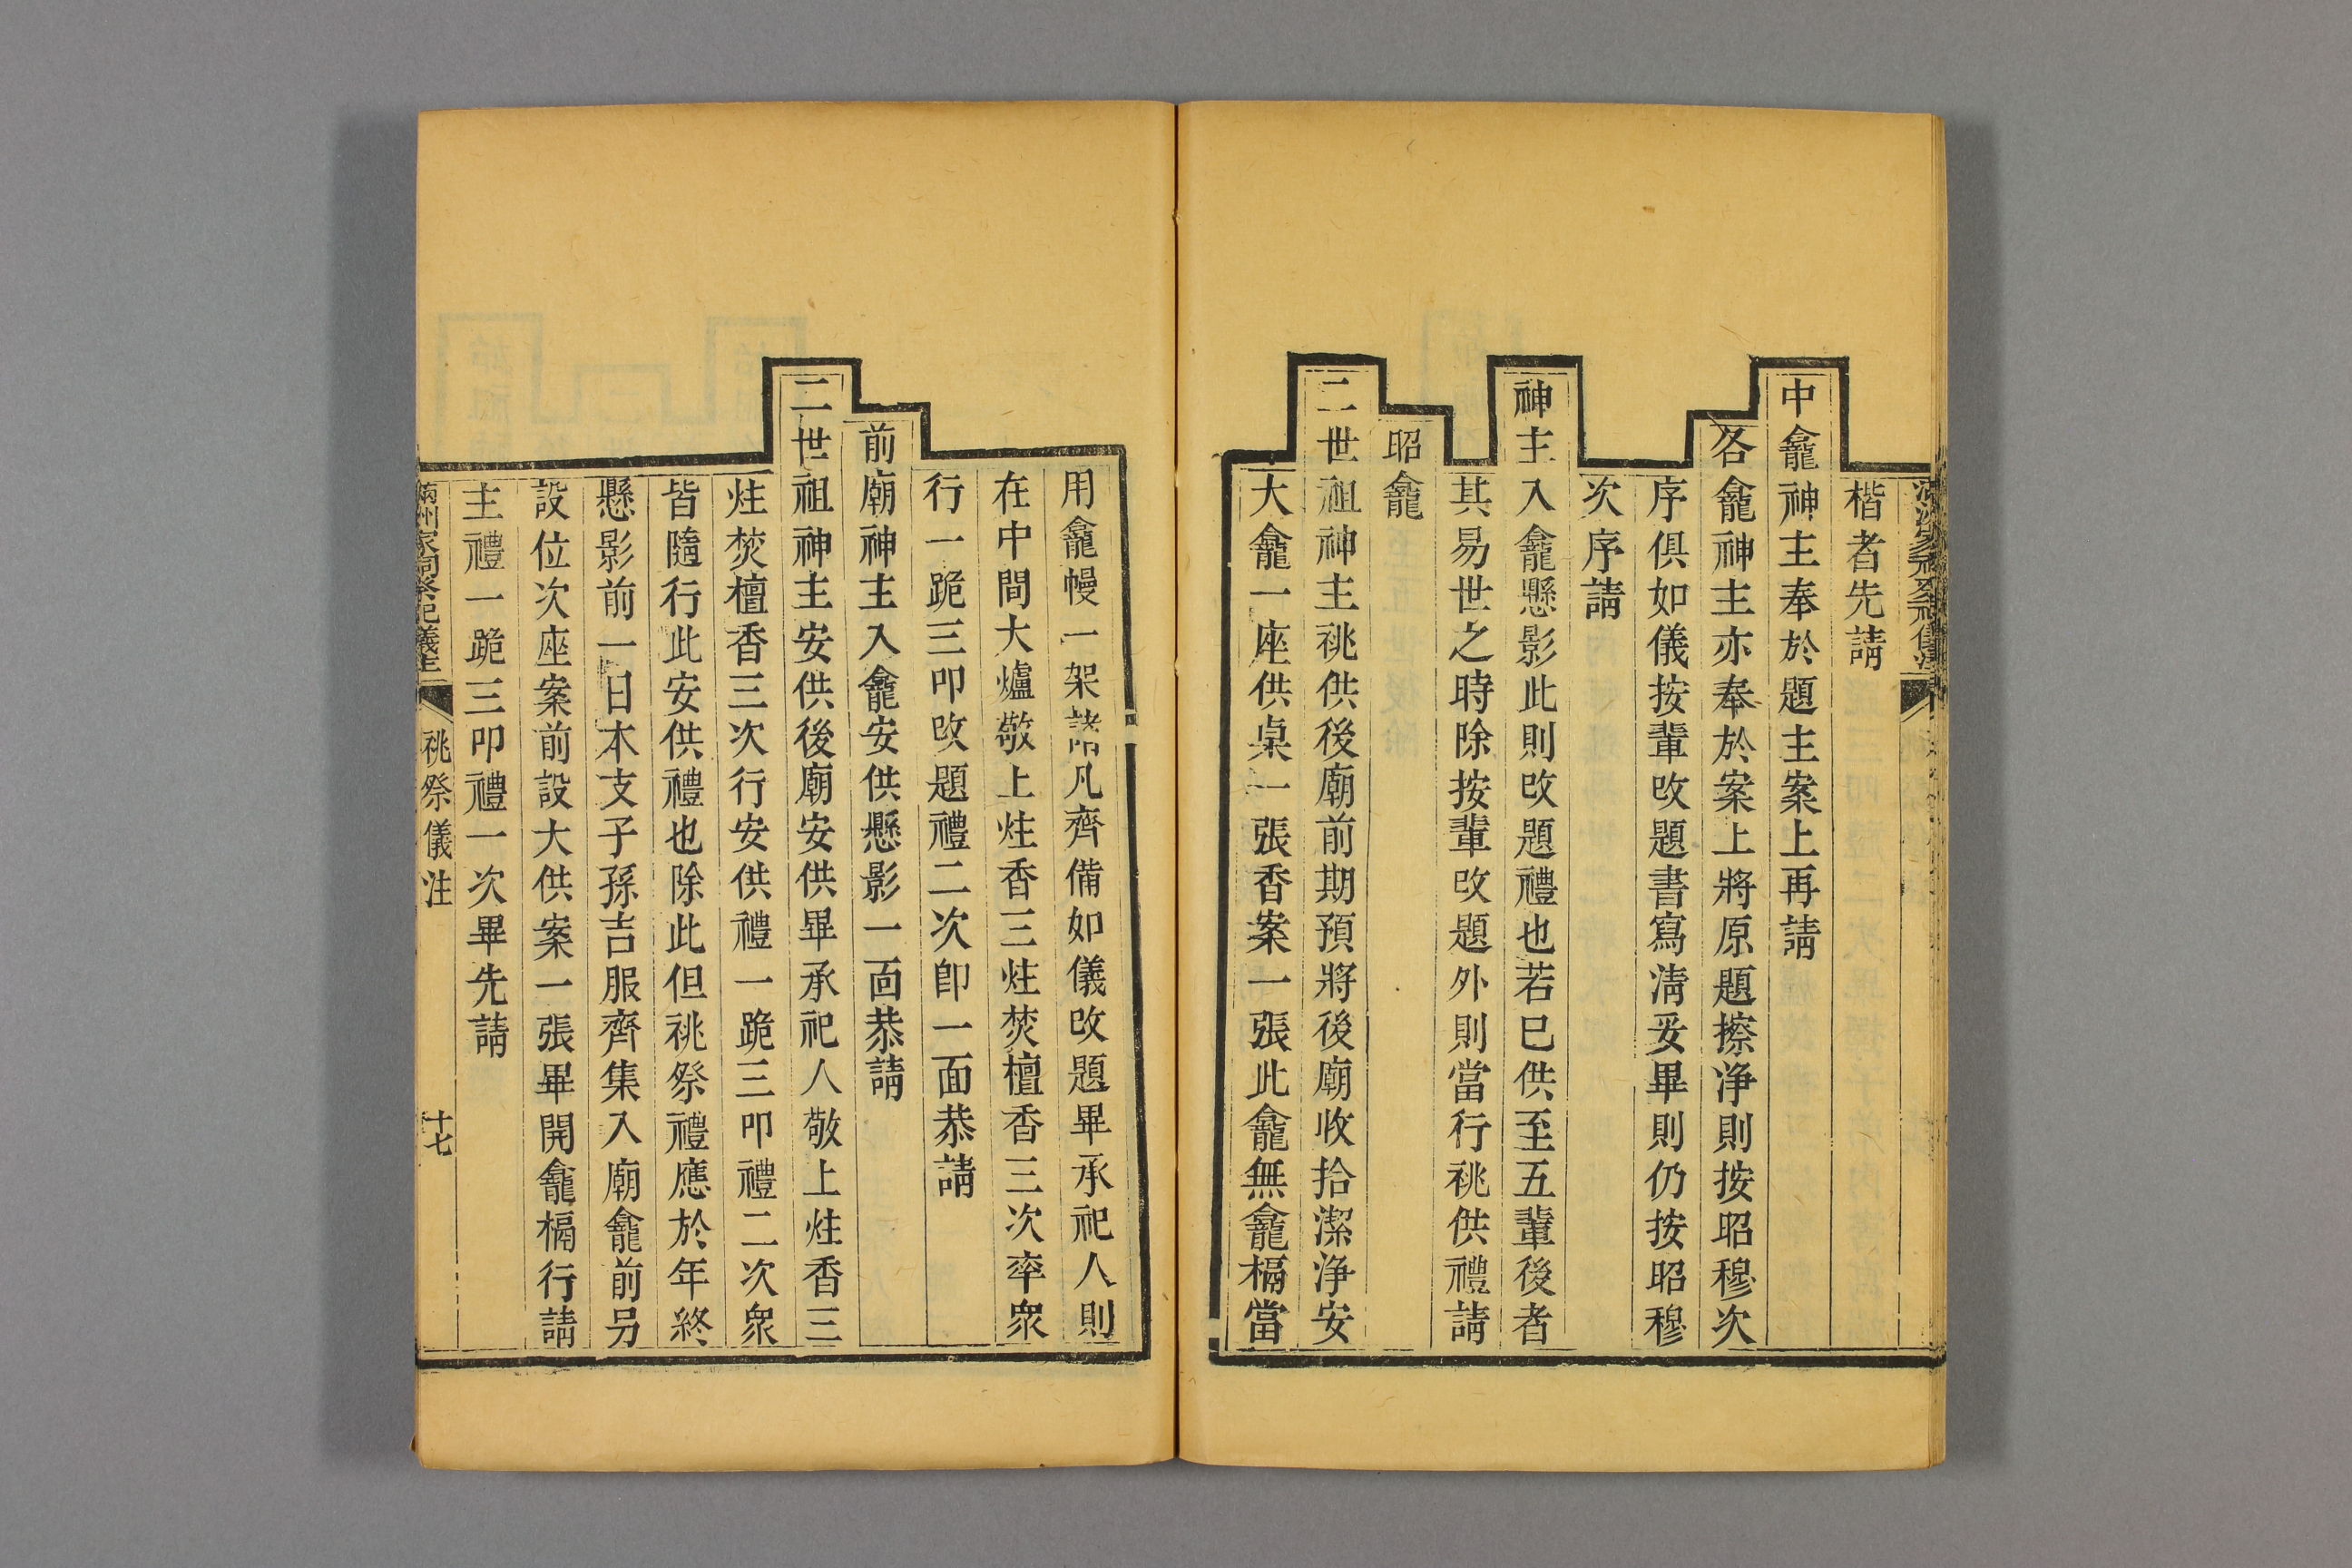 楷者先請
中龕神主奉於題主案上再請
各龕神主亦奉於案上將原題擦净則按昭穆次
序俱如儀按輩改題書寫清妥畢則仍按昭穆
次序請
神主入龕懸影此則改題禮也若已供至五輩後者
其易世之時除按輩改題外則當行祧供禮請
昭龕
二世祖神主祧供後廟前期預將後廟收拾潔淨安
大龕一座供桌一張香案一張此龕無龕槅當
用龕幔一架諸凡齊備如儀改題畢承祀人則
在中間大爐敬上炷香三炷焚檀香三次率衆
行一跪三叩改題禮二次卽一面恭請
前廟神主入龕安供懸影一面恭請
二世祖神主安供後廟安供畢承祀人敬上炷香三
炷焚檀香三次行安供禮一跪三叩禮二次衆
皆隨行此安供禮也除此但祧祭禮應於年終
懸影前一日本支子孫吉服齊集入廟龕前另
設位次座案前設大供案一張畢開龕槅行請
主禮一跪三叩禮一次畢先請
家祠祭祀儀注 祧祭儀注 十七